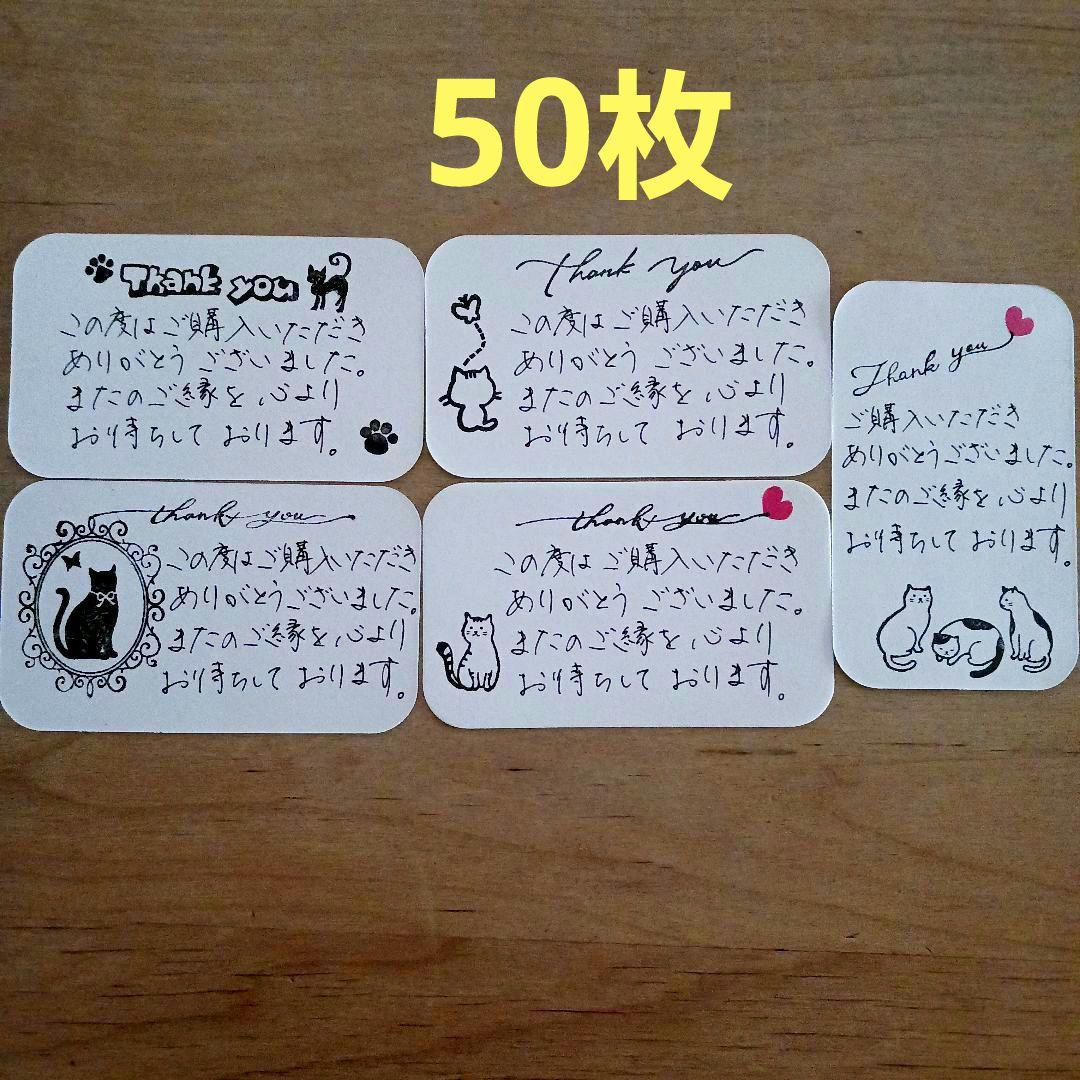 50枚
Thank you
この度はご購入いただき
ありがとうございました。
またのご縁を心より
お待ちしております。
Thank you
この度はご購入いただき
ありがとうございました。
またのご縁を心より
お待ちしております。
Thank you
ご購入いただき
ありがとうございました。
またのご縁を心より
お待ちしております。
thank you
この度はご購入いただき
ありがとうございました。
またのご縁を心より
お待ちしております。
thank you
この度はご購入いただき
ありがとうございました。
またのご縁を心より
お待ちしております。